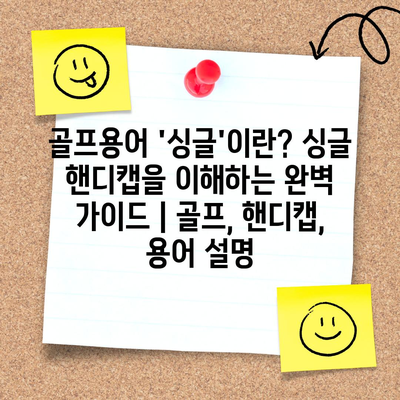 골프용어 '싱글'이란? 싱글
핸디캡을 이해하는 완벽
가이드 | 골프, 핸디캡,
용어 설명